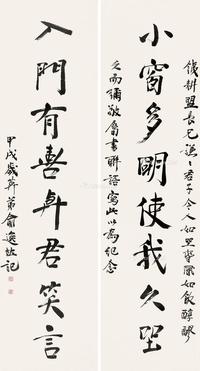 小窗多明使我久坐
耕盟長兄謙〻君子令人如坐春風如飲醇醪
久而彌敬屬書聯語寫此以為紀念
入門有喜與君笑言
甲戌歲莫弟俞逸芬記